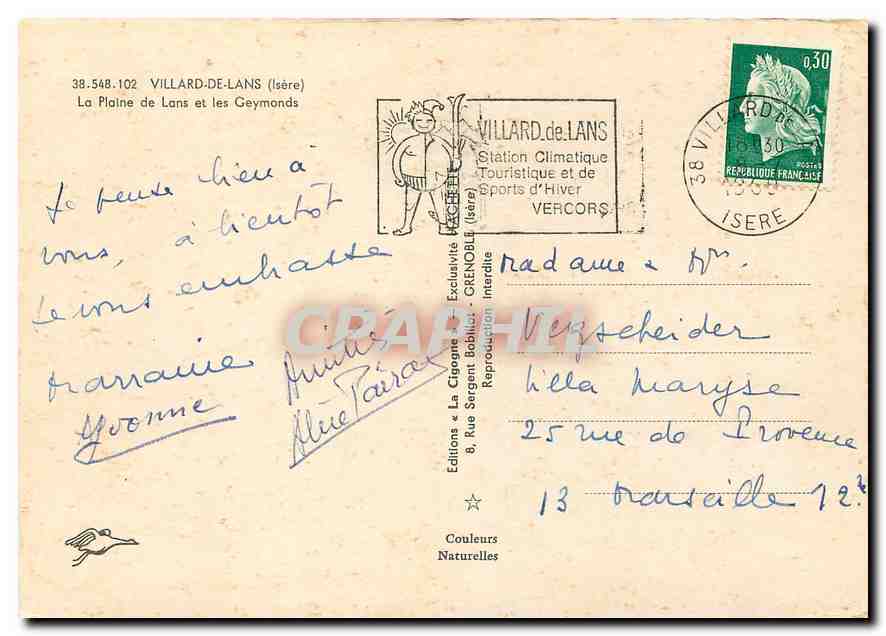 38.548.102 VILLARD-DE-LANS (Isère)
La Plaine de Lans et les Geymonds
Je pense bien à
vous, à bientôt
Je vous embrasse
Marraine
Yvonne
Amitiés
VILLARD.de.LANS
Station Climatique
Touristique et de
Sports d'Hiver
VERCORS
38 VILLARD DE
ISERE
0,30
POSTES
REPUBLIQUE FRANÇAISE
Editions « La Cigogne » - Exclusivité HACHETTE
8, Rue Sergent Bobillot - GRENOBLE (Isère)
Reproduction Interdite
Couleurs
Naturelles
CPAPHIL
Madame & Mr.
Vegscheider
Villa Maryse
25 rue de Provence
13 Marseille 12e